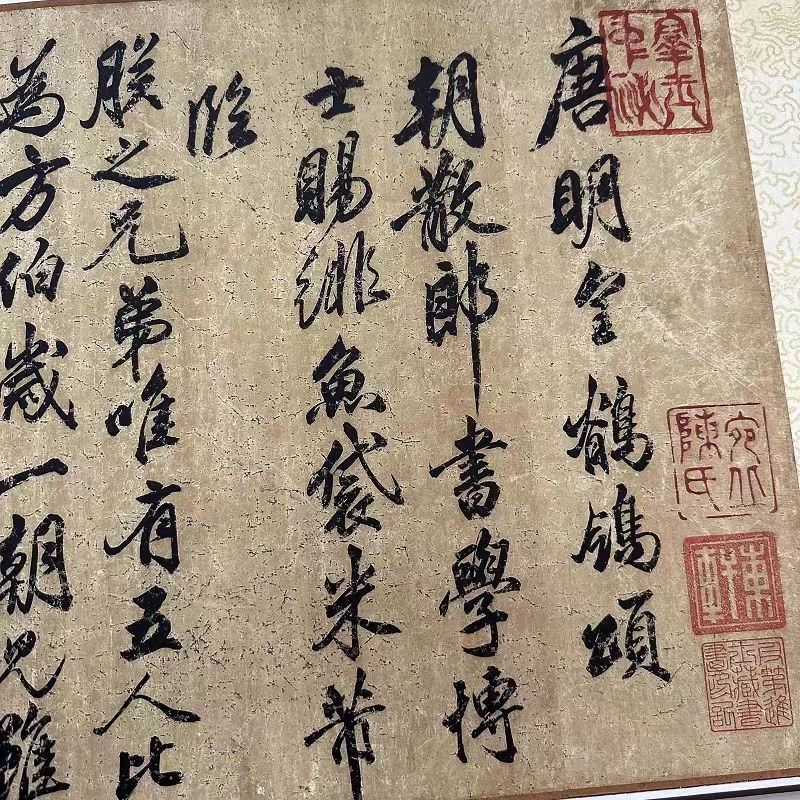 羣玉
中祕
唐明皇鶺鴒頌
宛丘
陳氏
朝散郎書學博
士賜緋魚袋米芾
臨
朕之兄弟唯有五人比
為方伯歲一朝見雖